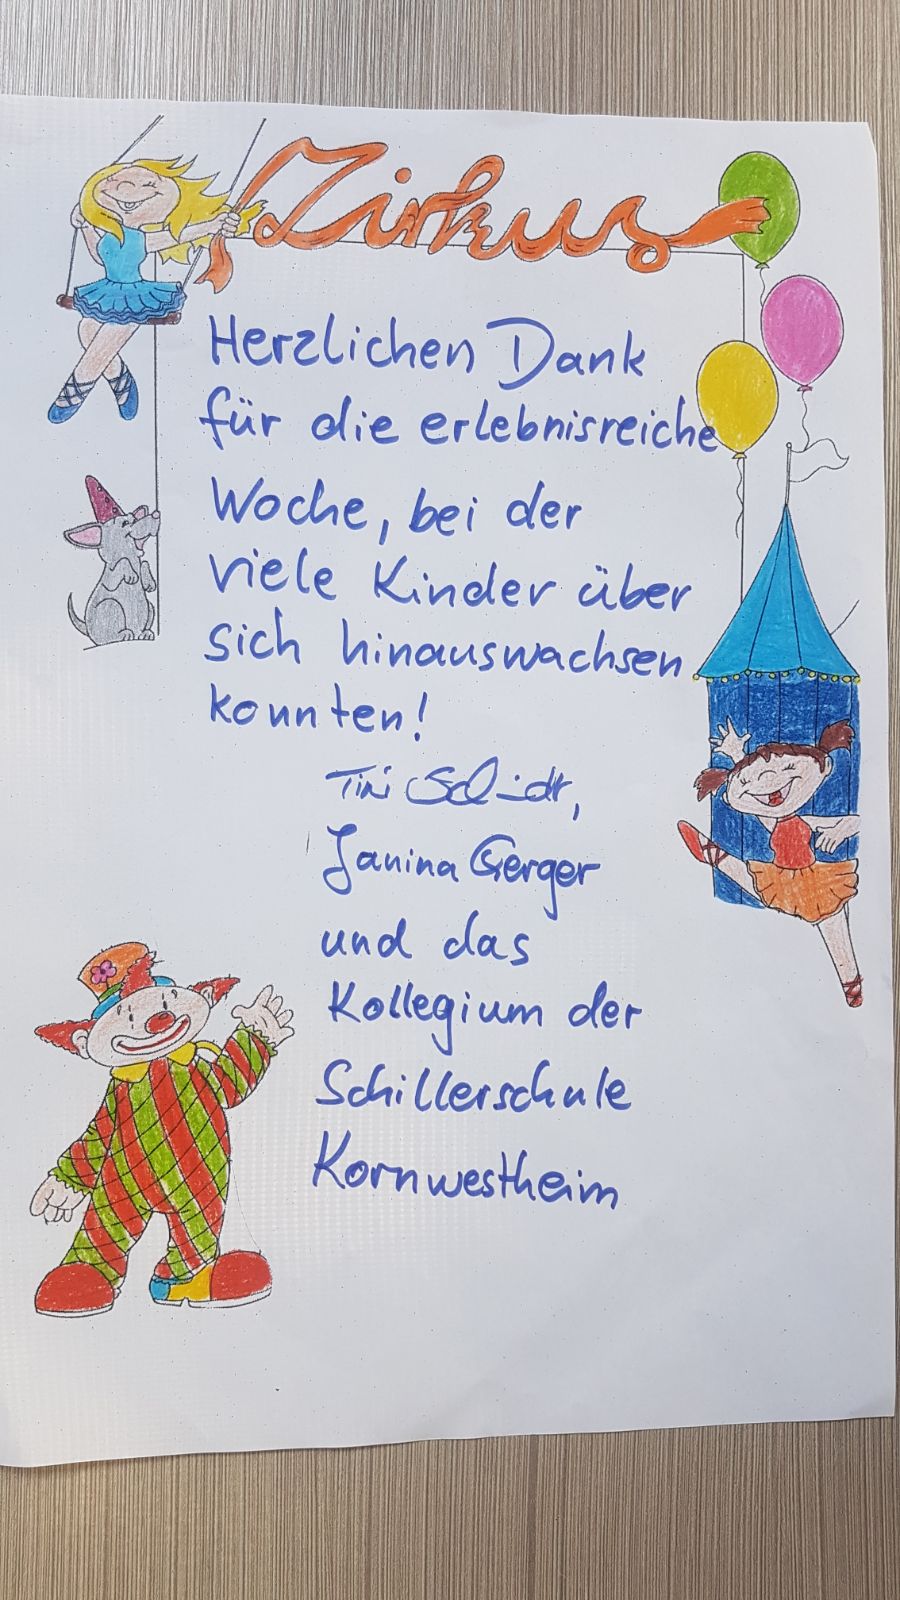 Zirkus
Herzlichen Dank
für die erlebnisreiche
Woche, bei der
viele Kinder über
sich hinauswachsen
konnten!
Janina Gerger
und das
Kollegium der
Schillerschule
Kornwestheim